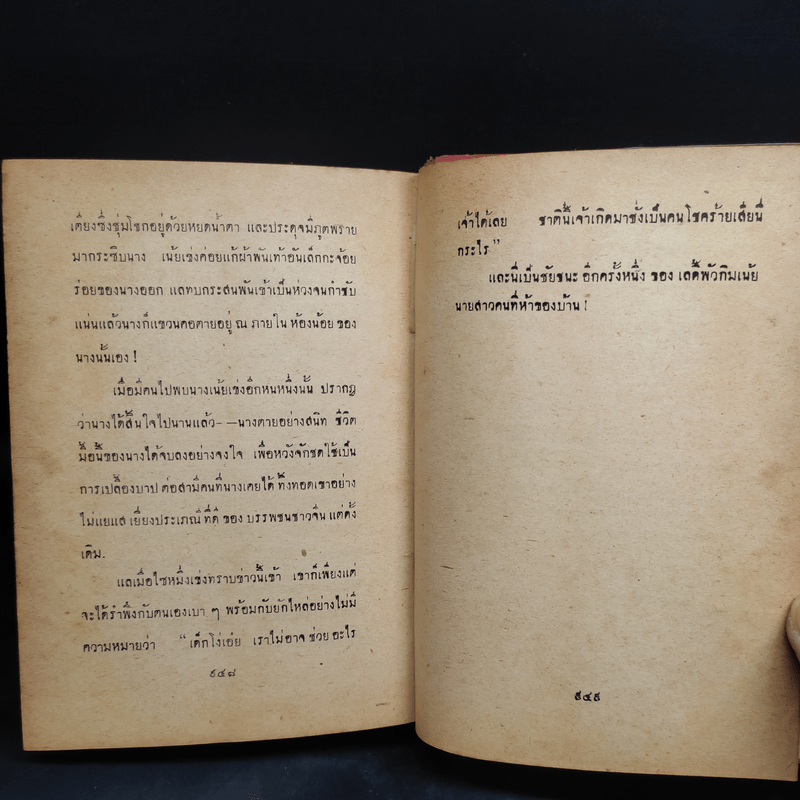 เตียงซึ่งชุ่มโชกอยู่ด้วยหยดน้ำตา และประดุจมีภูตพราย
มากระซิบนาง เนี้ยเช่งค่อยแก้ผ้าพันเท้าอันเล็กกะจ้อย
ร่อยของนางออก แลทบกระสนพันเข้าเป็นห่วงจนกำชับ
แน่นแล้วนางก็แขวนคอตายอยู่ ณ ภายใน ห้องน้อย ของ
นางนั้นเอง !
เมื่อมีคนไปพบนางเนี้ยเช่งอีกหนหนึ่งนั้น ปรากฏ
ว่านางได้สิ้นใจไปนานแล้ว- —นางตายอย่างสนิท ชีวิต
มื้อนี้ของนางได้จบลงอย่างจงใจ เพื่อหวังจักชดใช้เป็น
การเปลื้องบาป ต่อสามีคนที่นางเคยได้ ทิ้งทอดเขาอย่าง
ไม่แยแส เยี่ยงประเภณี ที่ดี ของ บรรพชนชาวจีน แต่ดั้ง
เดิม.
แลเมื่อไซหมึงเช่งทราบข่าวนี้เข้า เขาก็เพียงแต่
จะได้รำพึงกับตนเองเบา ๆ พร้อมกับยักไหล่อย่างไม่มี
ความหมายว่า “เด็กโง่เอ๋ย เราไม่อาจ ช่วย อะไร
๙๔๘
เจ้าได้เลย ชาตินี้เจ้าเกิดมาช่างเป็นคนโชคร้ายเสียนี่
กระไร”
และนี่เป็นชัยชนะ อีกครั้งหนึ่ง ของ เลดี้พัวกิมเนี้ย
นายสาวคนที่ห้าของบ้าน !
๙๔๙